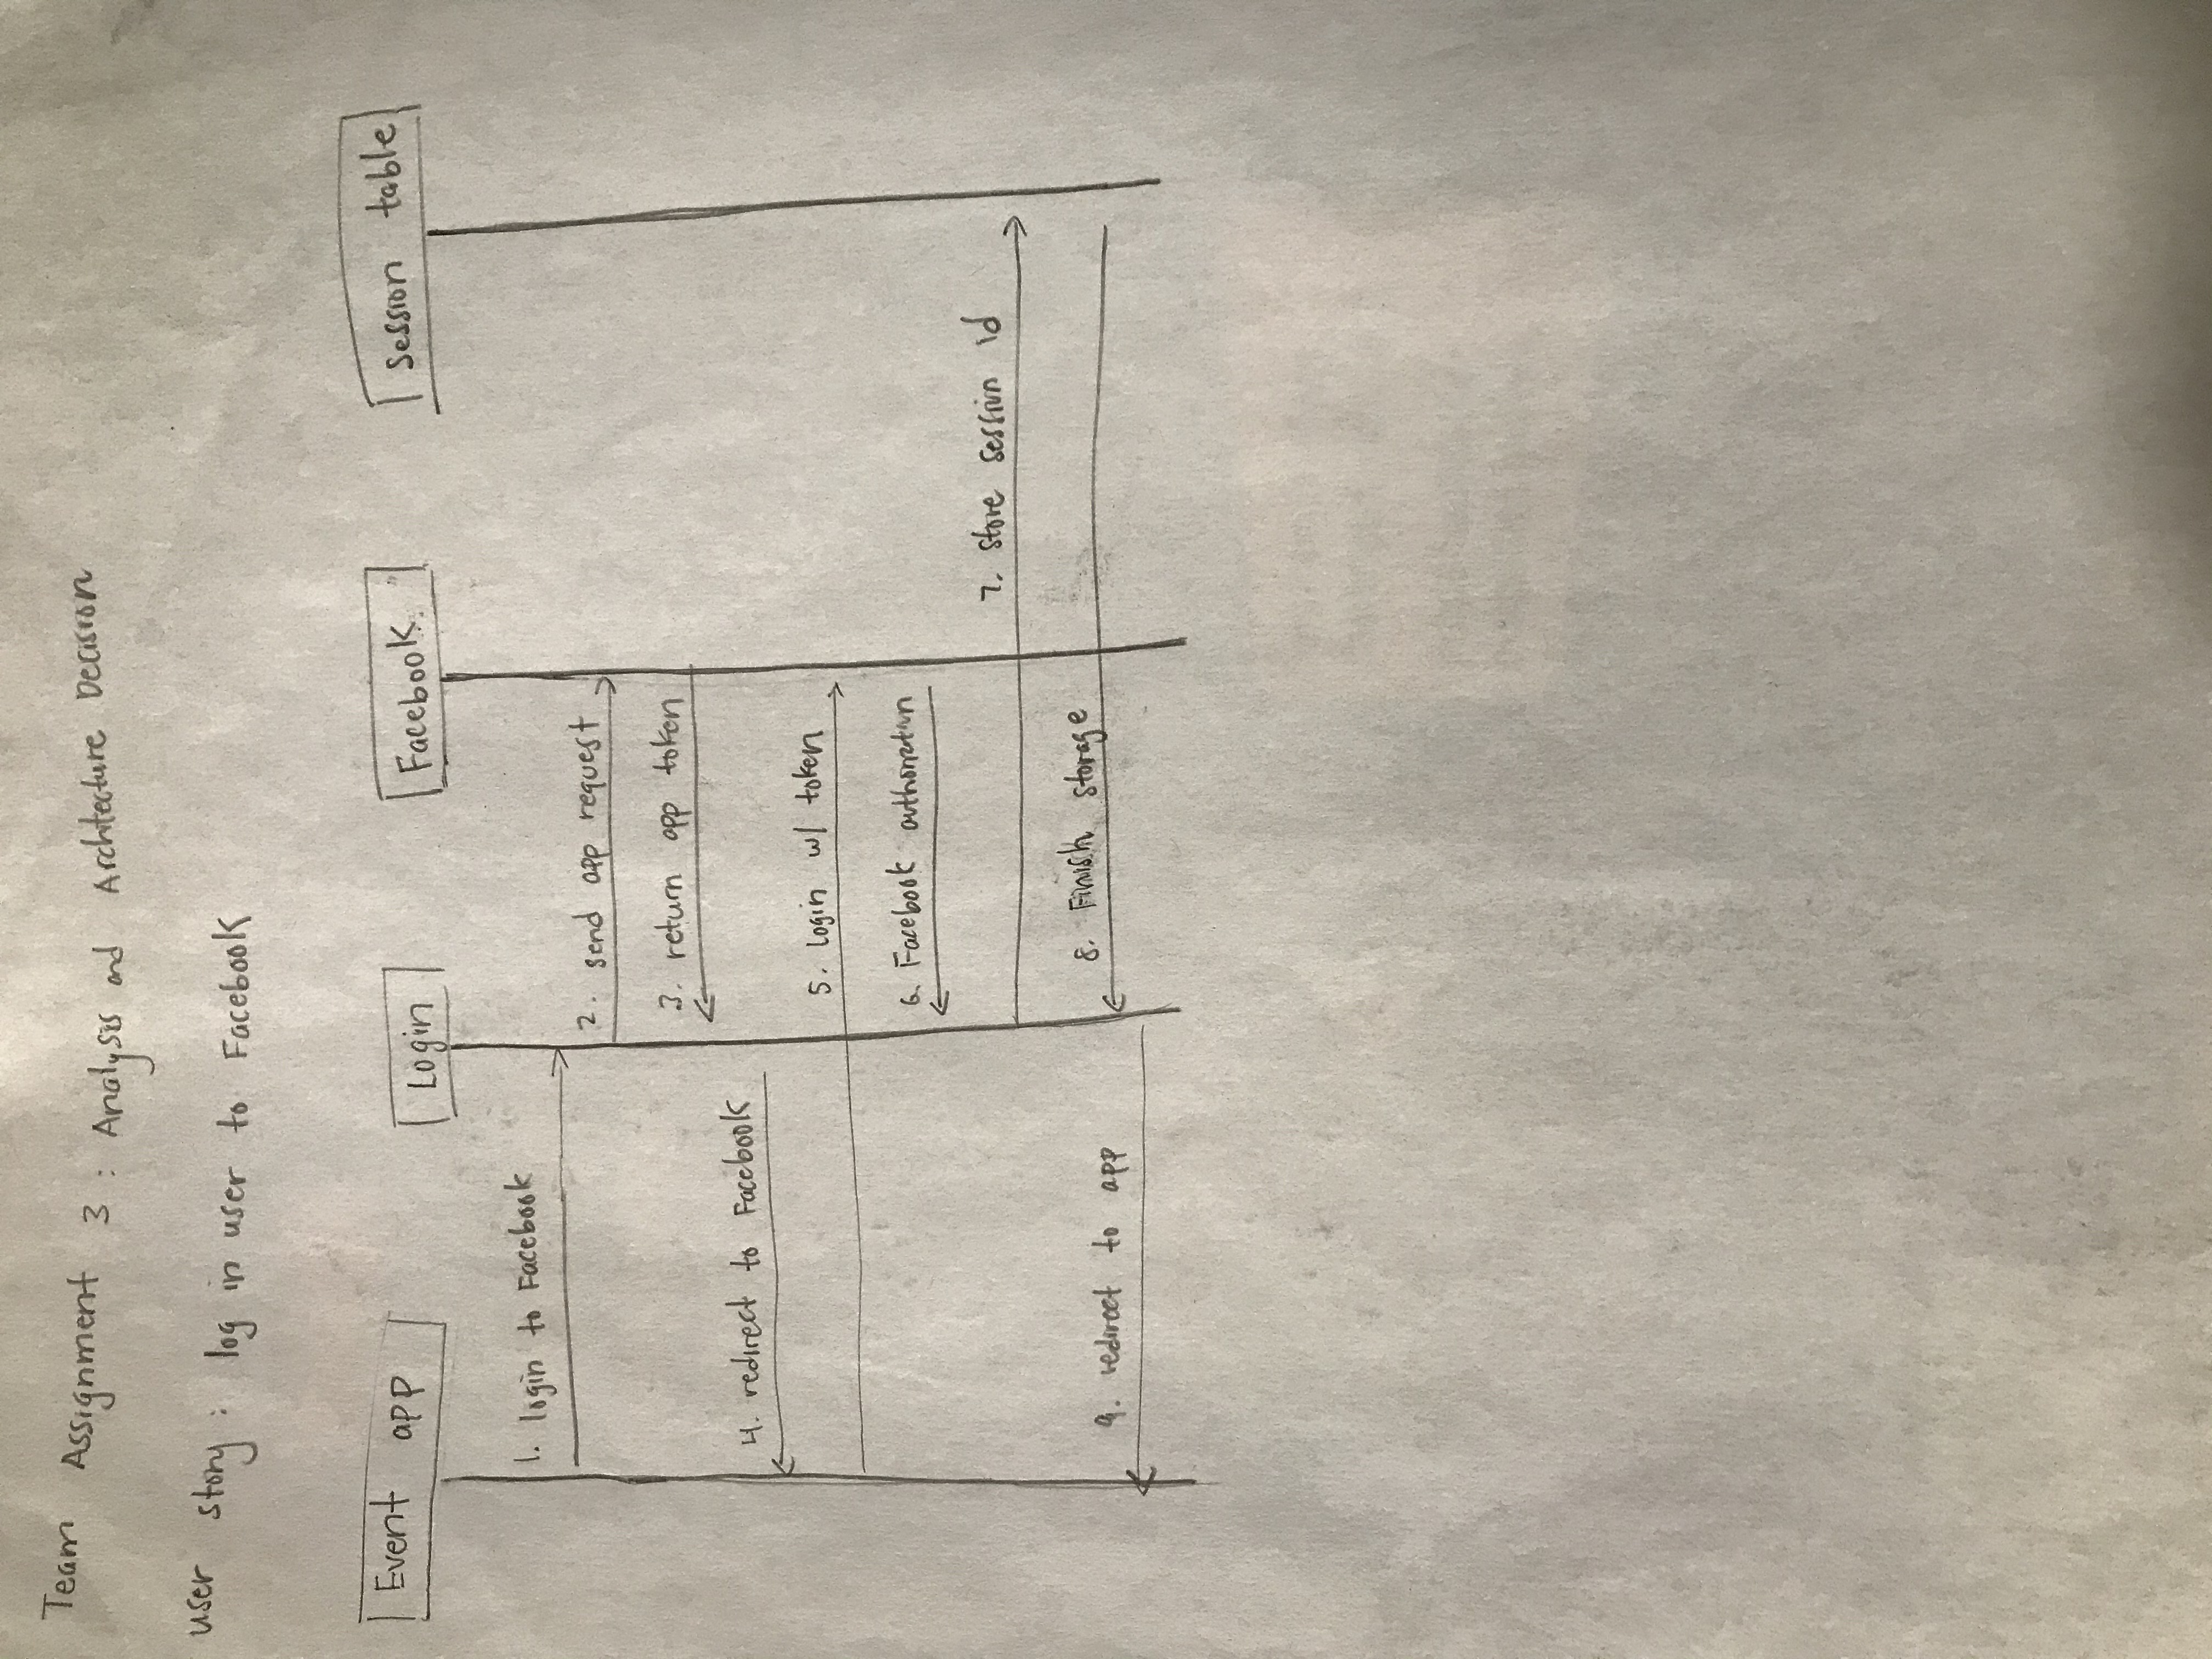 Team Assignment 3 : Analysis and Architecture Decision
user story : log in user to Facebook
Event app
Login
Facebook
Session table
1. login to Facebook
2. send app request
3. return app token
4. redirect to Facebook
5. login w/ token
6. Facebook authorization
7. store session id
8. Finish storage
9. redirect to app